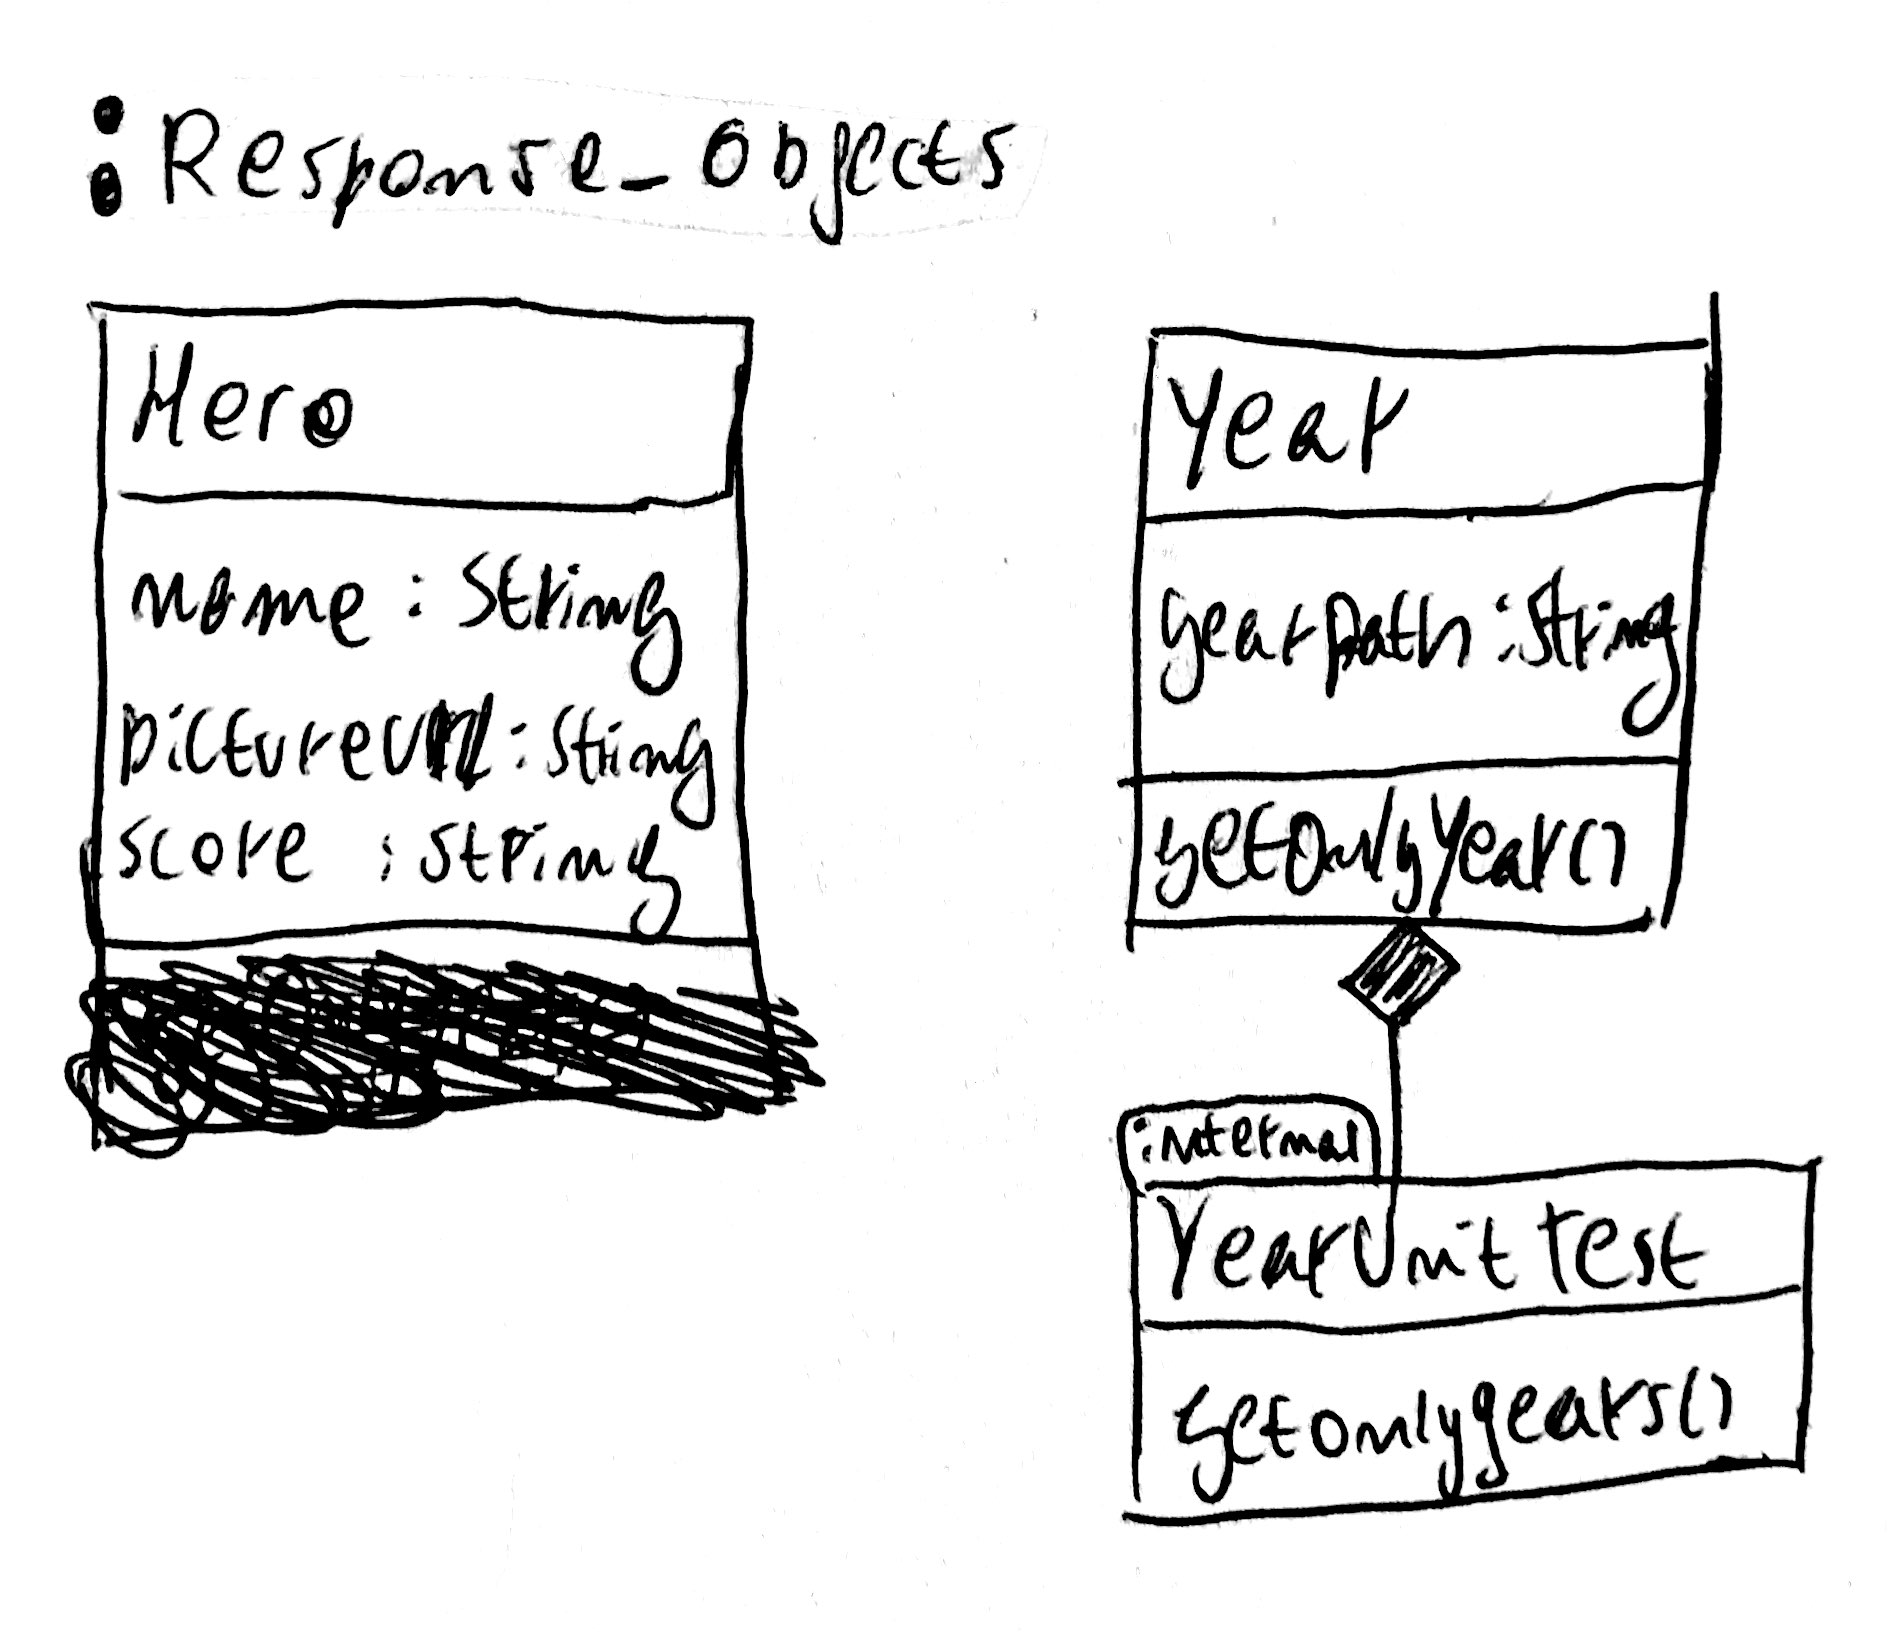 :Response_Objects
Hero
name : String
pictureUrl : String
score : String
Year
yearpath : String
getOnlyYear()
:internal
YearUnitTest
getonlyyears()